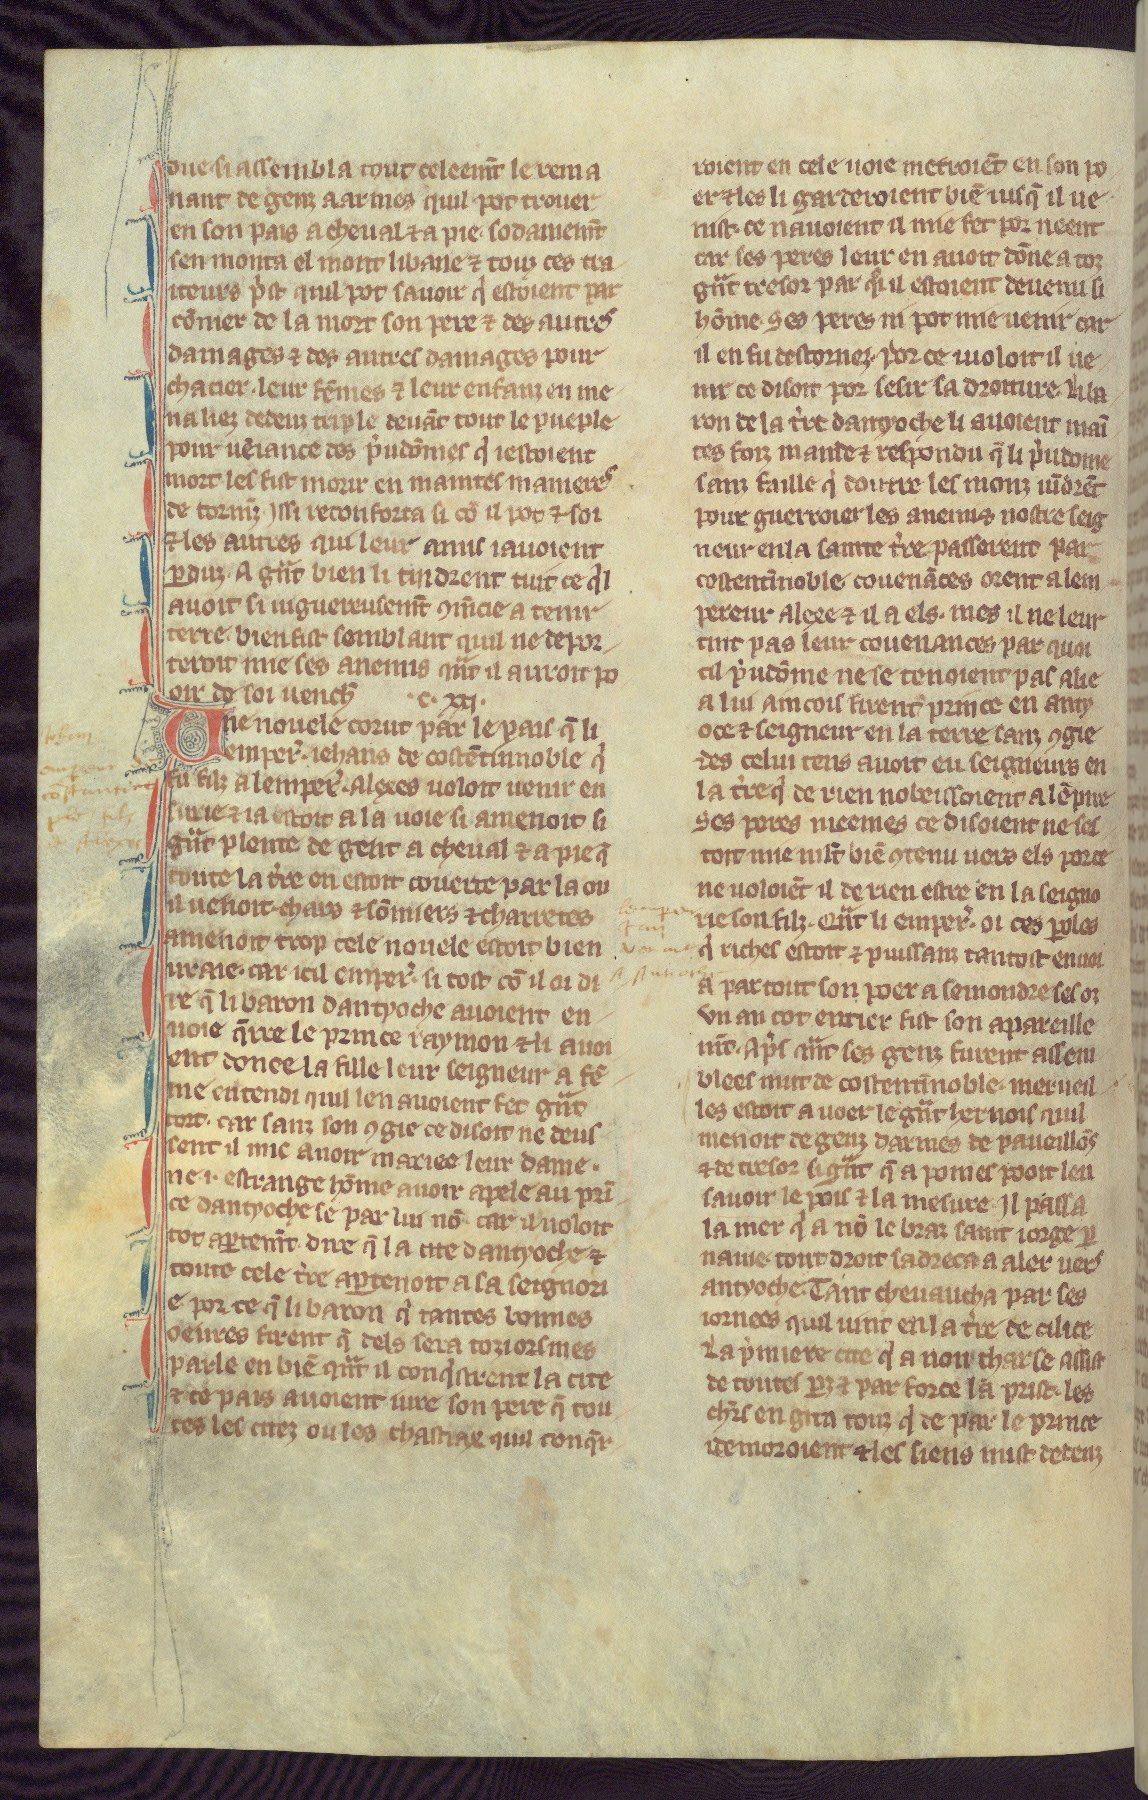 oue. si assembla tout celeemt le rema
nant de genz a armes quil pot trouer
en son pais a cheual et a pie. sodainemt
sen monta el mont libane et touz ces trai
teurs pst quil pot sauoir q̄ estoient par
cōnier de la mort son pere et des autres
damages et des autres damages pour
chacier. leur fēmes et leur enfanz en me
na liez dedenz triple deuāt tout le pueple
pour uēiance des pͥudōmes q̄ iestoient
mort les fist morir en maintes manieres
de tormz Issi reconforta si cō il pot et soi
et les autres qui leur amis i auoient
ꝑduz. A gnt bien li tindrent tuit ce qͥl
auoit si uiguereusemt ꝯmͥcie a tenir
terre. bien fist semblant quil ne depor
teroit mie ses anemis qnt il auroit po
oir de soi uench̄  .c. xxj.
Une nouele corut par le pais q̄ li
emper̄. iehans de costētinnoble q̄
fu filz a lemper̄. Alexes uoloit uenir en
surie et ia estoit a la uoie si amenoit si
gnt plente de gent a cheual et a pie q̄
toute la tr̄e en estoit couerte par la ou
il uenoit. chars et sōmiers et charretes
amenoit trop cele nouele estoit bien
uraie. car icil emper̄. si tost cō il oi di
re q̄ li baron dantyoche auoient en
uoie q̄rre le prince raymon et li auoi
ent donee la fille leur seigneur a fē
me entendi quil len auoient fet gnt
tort. car sanz son ꝯgie ce disoit ne deus
sent il mie auoir mariee leur dame.
ne .i. estrange hōme auoir apele au prī
ce dantyoche se par lui nō. car il uoloit
tot aꝑtemt. dire q̄ la cite dantyoche et
toute cele tr̄e aꝑtenoit a sa seignori
e por ce q̄ li baron q̄ tantes bonnes
oeures firent q̄ dels sera toziorsmes
parle en biē qnt il conqͥstrent la cite
et ce pais auoient iure son pere q̄ tou
tes les citez ou les chastiax quil conqr̄
roient en cele uoie metroiēt en son po
er et les li garderoient biē iusq̄ il ue
nist. ce nauoient il mie fet por neent
car ses peres leur en auoit dōne a toz
gnt tresor par qͥ il estoient deuenu si
hōme. Ses peres ni pot mie uenir car
il en fu destornez. por ce iuoloit il ue
nir ce disoit por sesir sa droiture. Li ba
ron de la tr̄e dantyoche li auoient main
tes foiz mande et respondu q̄ li pͥudome
sanz faille q̄ doutre les monz uīdrēt
pour guerroier les anemis nostre seig
neur en la sainte tr̄e passerent par
costentīnoble. couenāces orent a lem
pereur Alexe et il a els. mes il ne leur
tint pas leur couenances par quoi
cil pͥudōme ne se tenoient pas alie
a lui aincois firent prince en anty
oce et seigneur en la terre sanz ꝯgie
des celui tens auoit eu seigneurs en
la tr̄e q̄ de rien nobeissoient a lēpire
Ses peres meemes ce disoient ne ses
toit mie mlt biē ꝯtenu uers els porce
ne uoloiēt il de rien estre en la seigno
rie son filz. Qnt li emper̄. oi ces ꝑoles
q̄ riches estoit et puissanz tantost enuoi
a par tout son poer a semondre ses oz
Vn an tot entier fist son apareille
mt. Apͥs qnt ses genz furent assem
blees mut de costentīnoble. merueil
les estoit a uoer le gnt hernois quil
menoit de genz darmes de paueillōs
et de tresor si gnt q̄ a poines pooit len
sauoir le pois et la mesure. Il passa
la mer q̄ a nō le braz saint iorge ꝑ
nauie. tout droit sadreca a aler uers
antyoche. Tant cheuaucha par ses
iornees quil uint en la tr̄e de cilice
La pͥmiere cite q̄ a non tharse assist
de toutes ꝑz et par force la prist. les
chr̄s en gita touz q̄ de par le prince
idemoroient et les siens mist dedenz